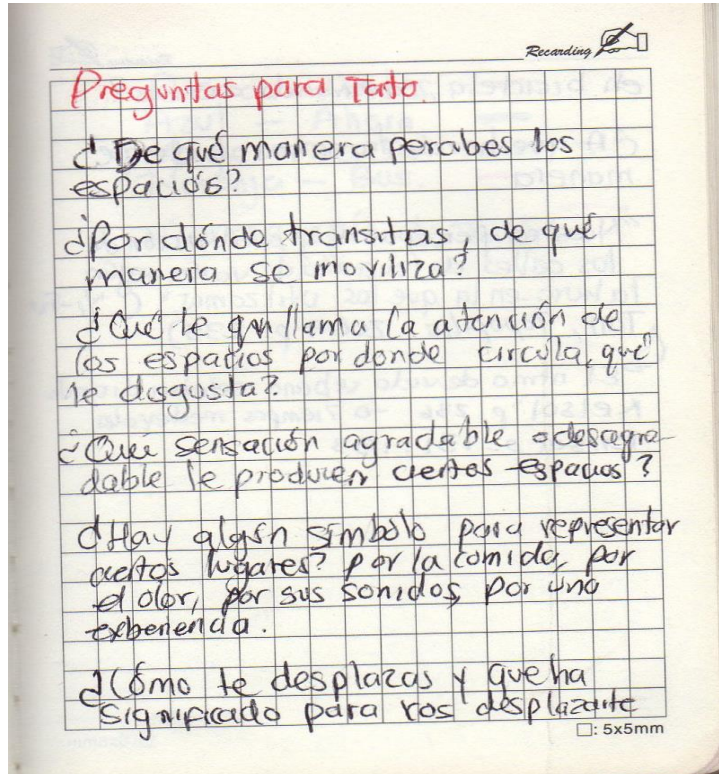 Recarding
Preguntas para Tato.
¿De qué manera percibes los
espacios?
¿Por dónde transitas, de qué
manera se moviliza?
¿Qué le llama la atención de
los espacios por donde circula, qué
le disgusta?
¿Qué sensación agradable o desagra-
dable le producen ciertos espacios?
¿Hay algún símbolo para representar
ciertos lugares? por la comida, por
el olor, por sus sonidos, por una
experiencia.
¿Cómo te desplazas y que ha
significado para vos desplazarte
□: 5x5mm